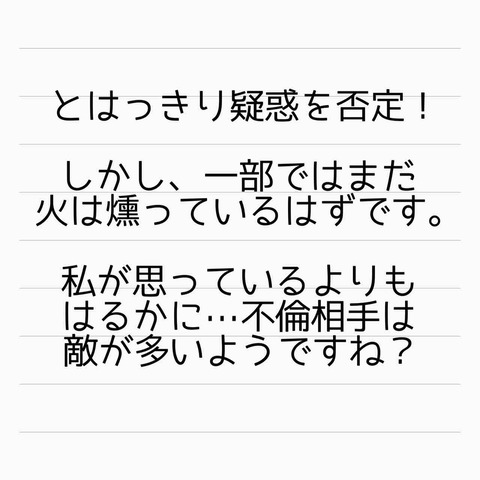 とはっきり疑惑を否定！
しかし、一部ではまだ
火は燻っているはずです。
私が思っているよりも
はるかに…不倫相手は
敵が多いようですね？